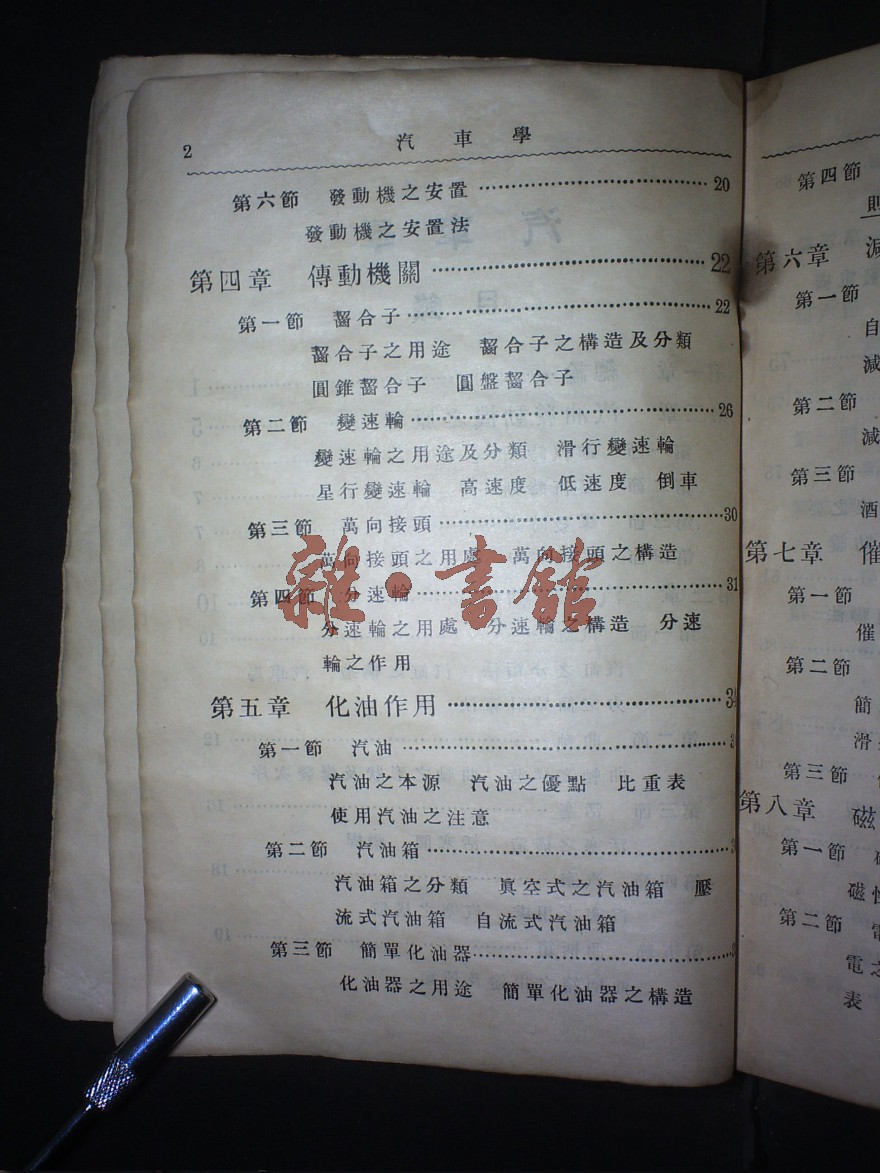 2 汽車學
第六節 發動機之安置 20
發動機之安置法
第四章 傳動機關 22
第一節 齧合子 22
齧合子之用途 齧合子之構造及分類
圓錐齧合子 圓盤齧合子
第二節 變速輪 26
變速輪之用途及分類 滑行變速輪
星行變速輪 高速度 低速度 倒車
第三節 萬向接頭 30
萬向接頭之用處 萬向接頭之構造
第四節 分速輪 31
分速輪之用處 分速輪之構造 分速
輪之作用
第五章 化油作用
第一節 汽油
汽油之本源 汽油之優點 比重表
使用汽油之注意
第二節 汽油箱
汽油箱之分類 眞空式之汽油箱 壓
流式汽油箱 自流式汽油箱
第三節 簡單化油器
化油器之用途 簡單化油器之構造
雜·書館
第四節
第六章 減
第一節
自
減
第二節
減
第三節
酒
第七章 催
第一節
催
第二節
簡
滑
第三節
第八章 磁
第一節
磁性
第二節 電
電之
表